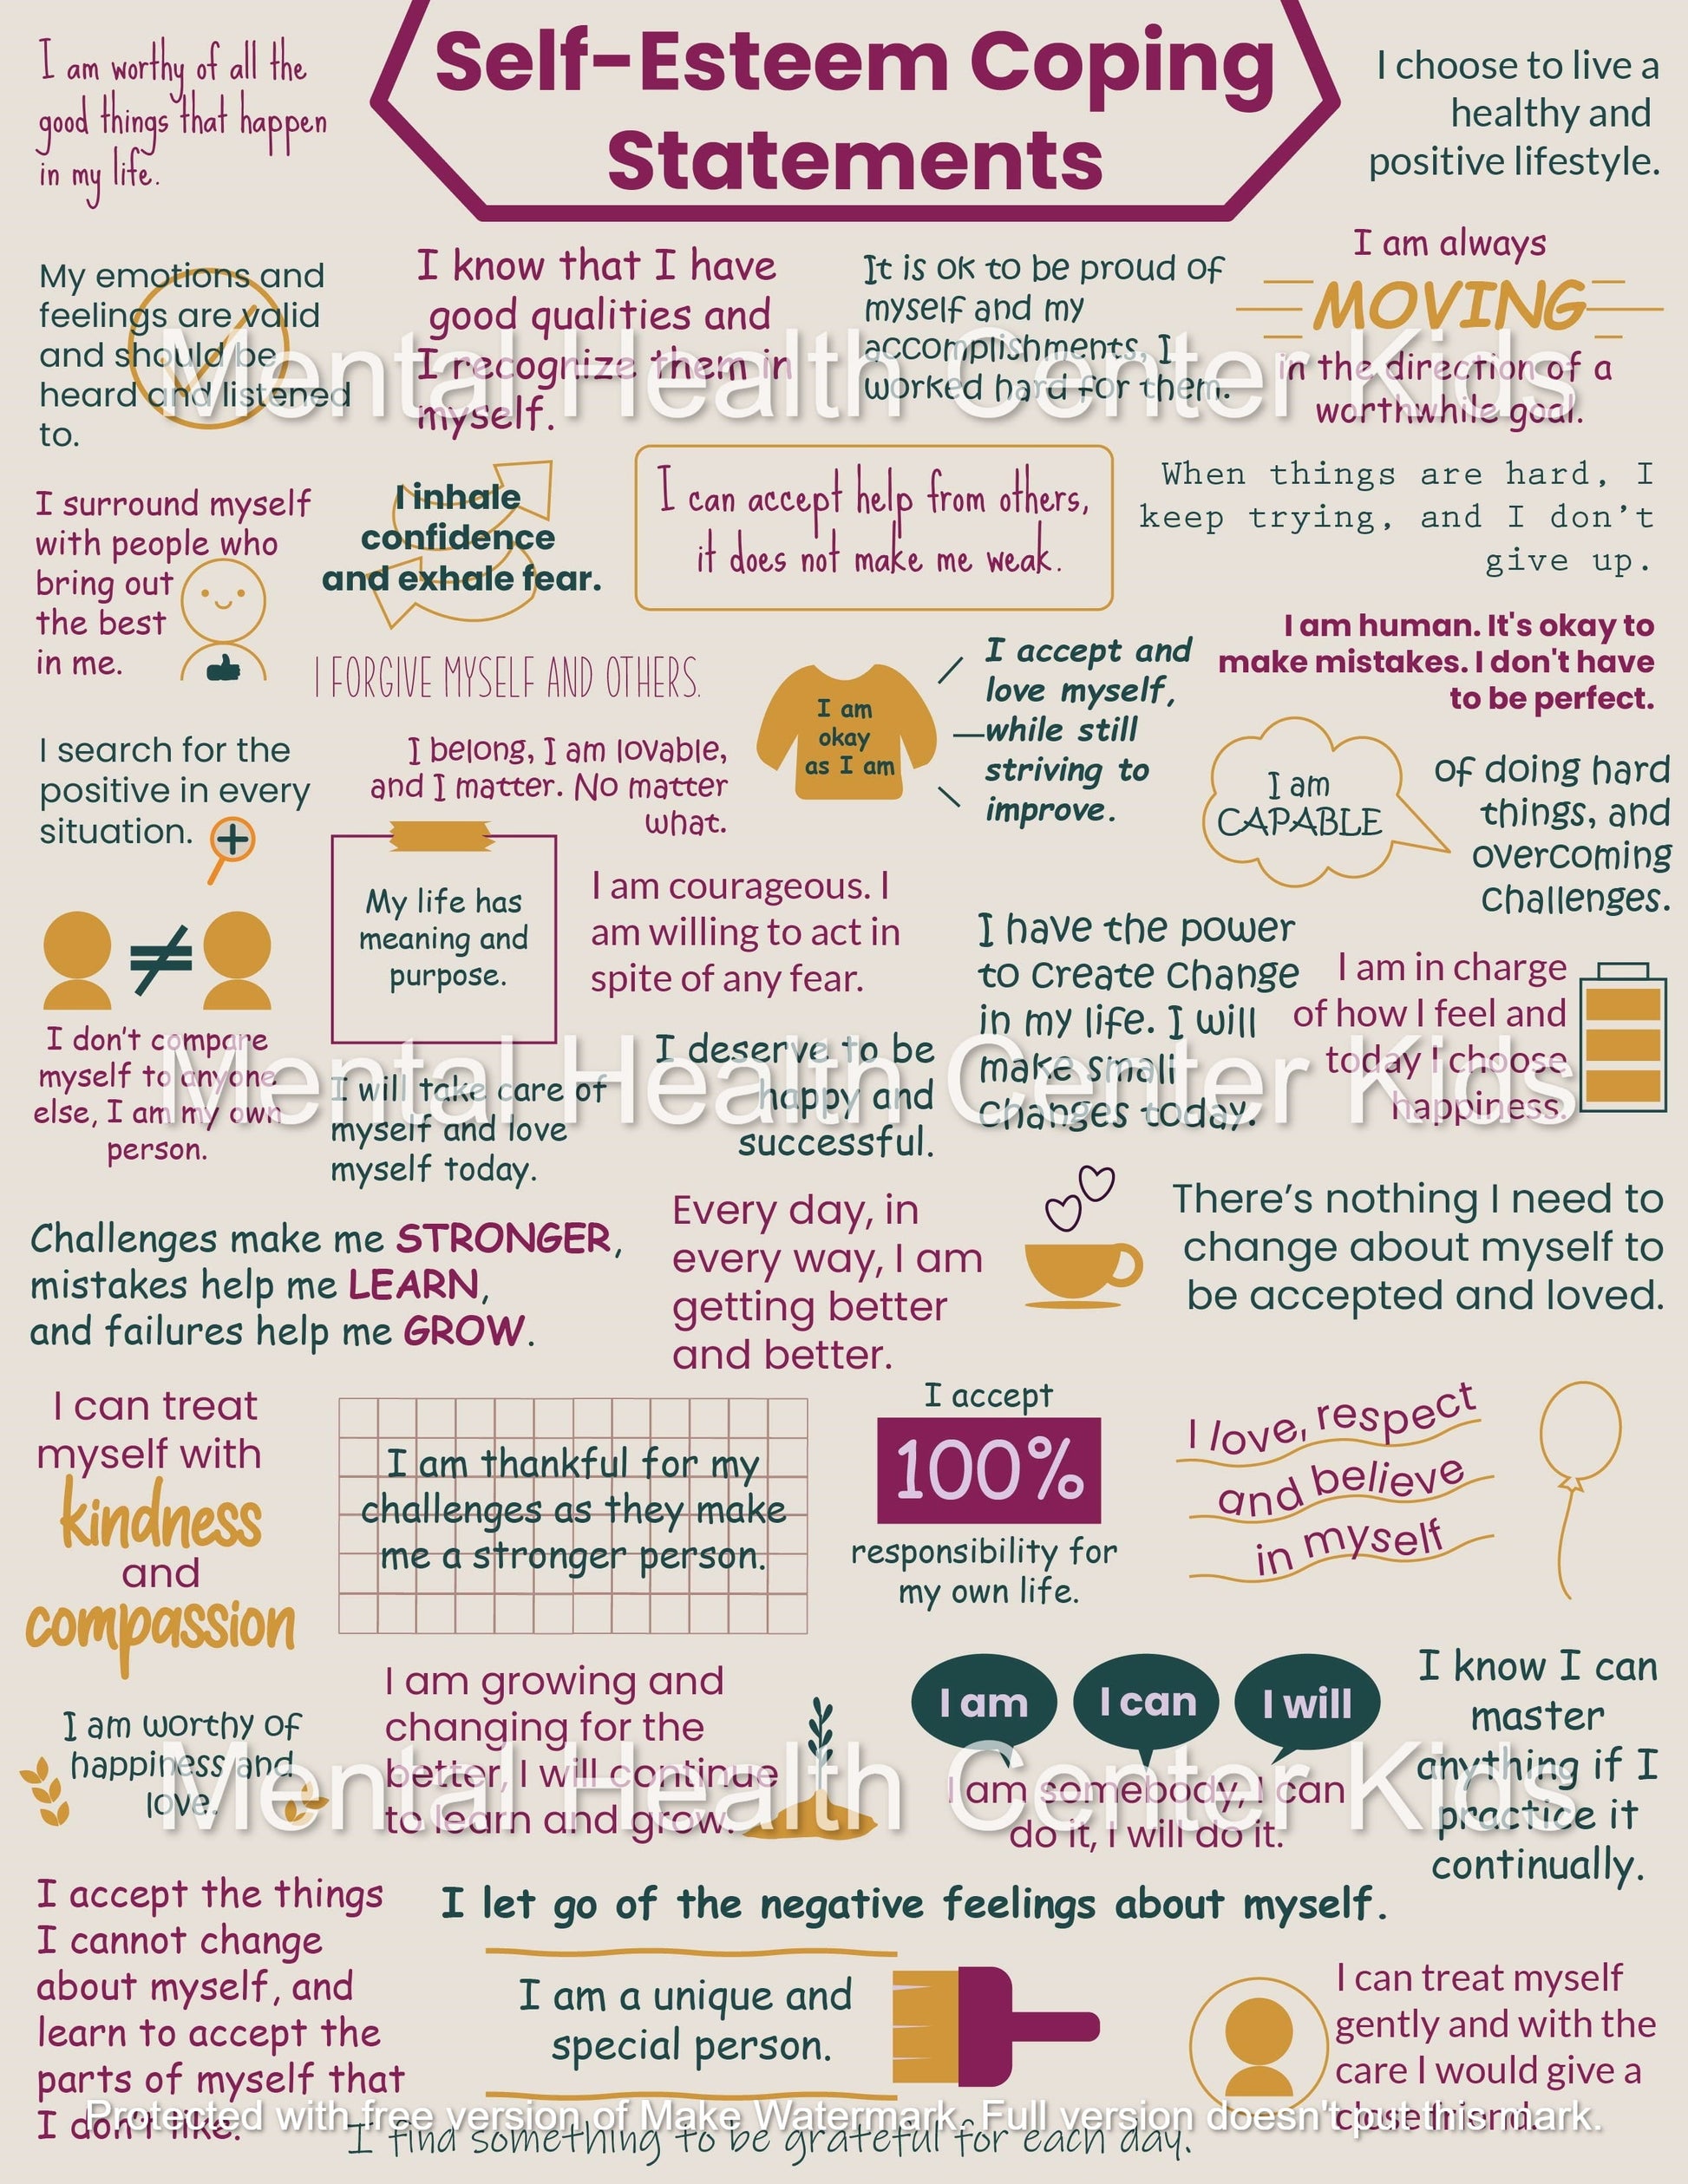 Self-Esteem Coping
Statements
I am worthy of all the
good things that happen
in my life.
I choose to live a
healthy and
positive lifestyle.
My emotions and
feelings are valid
and should be
heard and listened
to.
I know that I have
good qualities and
I recognize them in
myself.
It is ok to be proud of
myself and my
accomplishments, I
worked hard for them.
I am always
MOVING
in the direction of a
worthwhile goal.
Mental Health Center Kids
I surround myself
with people who
bring out
the best
in me.
I inhale
confidence
and exhale fear.
I can accept help from others,
it does not make me weak.
When things are hard, I
keep trying, and I don't
give up.
I FORGIVE MYSELF AND OTHERS.
I am
okay
as I am
I accept and
love myself,
while still
striving to
improve.
I am human. It's okay to
make mistakes. I don't have
to be perfect.
I search for the
positive in every
situation.
I belong, I am lovable,
and I matter. No matter
what.
I am
CAPABLE
of doing hard
things, and
overcoming
challenges.
My life has
meaning and
purpose.
I am courageous. I
am willing to act in
spite of any fear.
I have the power
to create change
in my life. I will
make small
changes today.
I am in charge
of how I feel and
today I choose
happiness.
I don't compare
myself to anyone
else, I am my own
person.
I will take care of
myself and love
myself today.
I deserve to be
happy and
successful.
Mental Health Center Kids
Challenges make me STRONGER,
mistakes help me LEARN,
and failures help me GROW.
Every day, in
every way, I am
getting better
and better.
There's nothing I need to
change about myself to
be accepted and loved.
I can treat
myself with
kindness
and
compassion
I am thankful for my
challenges as they make
me a stronger person.
I accept
100%
responsibility for
my own life.
I love, respect
and believe
in myself
I am worthy of
happiness and
love.
I am growing and
changing for the
better, I will continue
to learn and grow.
I am
I can
I will
I am somebody, I can
do it, I will do it.
I know I can
master
anything if I
practice it
continually.
Mental Health Center Kids
I accept the things
I cannot change
about myself, and
learn to accept the
parts of myself that
I don't like.
I let go of the negative feelings about myself.
I am a unique and
special person.
I can treat myself
gently and with the
care I would give a
close friend.
Protected with free version of Make Watermark. Full version doesn't put this mark.
I find something to be grateful for each day.